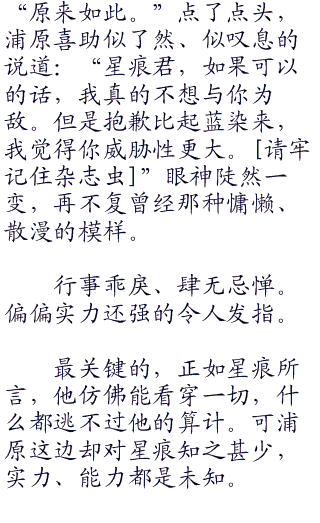 “原来如此。”点了点头，
浦原喜助似了然、似叹息的
说道：“星痕君，如果可以
的话，我真的不想与你为
敌。但是抱歉比起蓝染来，
我觉得你威胁性更大。[请牢
记住杂志虫]”眼神陡然一
变，再不复曾经那种慵懒、
散漫的模样。
行事乖戾、肆无忌惮。
偏偏实力还强的令人发指。
最关键的，正如星痕所
言，他仿佛能看穿一切，什
么都逃不过他的算计。可浦
原这边却对星痕知之甚少，
实力、能力都是未知。